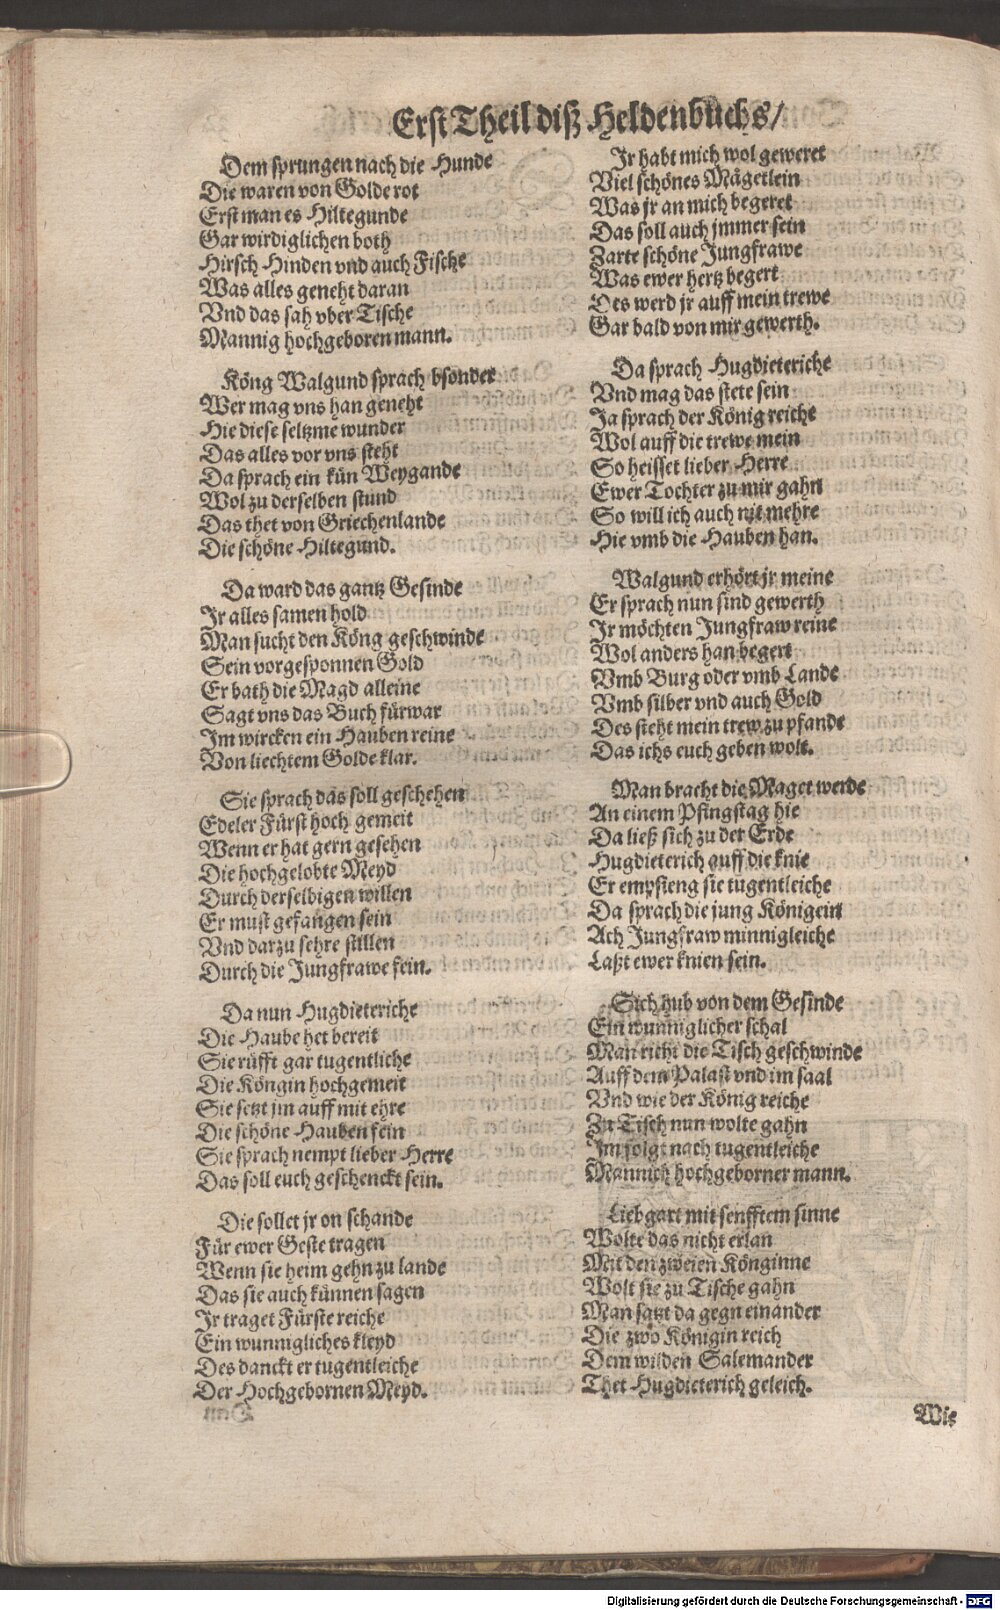 Erst Theil diß Heldenbuchs/
Dem sprungen nach die Hunde
Die waren von Golde rot
Erst man es Hiltegunde
Gar wirdiglichen both
Hirsch Hinden vnd auch Fische
Was alles geneht daran
Vnd das sah vber Tische
Mannig hochgeboren mann.
Köng Walgund sprach bsonder
Wer mag vns han geneht
Hie diese seltzme wunder
Das alles vor vns steht
Da sprach ein kün Weygande
Wol zu derselben stund
Das thet von Griechenlande
Die schöne Hiltegund.
Da ward das gantz Gesinde
Jr alles samen hold
Man sucht den Köng geschwinde
Sein vorgesponnen Gold
Er bath die Magd alleine
Sagt vns das Buch fürwar
Im wircken ein Hauben reine
Von liechtem Golde klar.
Sie sprach das soll geschehen
Edeler Fürst hoch gemeit
Wenn er hat gern gesehen
Die hochgelobte Meyd
Durch derselbigen willen
Er must gefangen sein
Vnd darzu sehre stillen
Durch die Jungfrawe fein.
Da nun Hugdieteriche
Die Haube het bereit
Sie rüfft gar tugentliche
Die Köngin hochgemeit
Sie setzt jm auff mit ehre
Die schöne Hauben fein
Sie sprach nempt lieber Herre
Das soll euch geschenckt sein.
Die sollet jr on schande
Für ewer Geste tragen
Wenn sie heim gehn zu lande
Das sie auch künnen sagen
Jr traget Fürste reiche
Ein wunnigliches kleyd
Des danckt er tugentleiche
Der Hochgebornen Meyd.
Jr habt mich wol geweret
Viel schönes Mägetlein
Was jr an mich begeret
Das soll auch jmmer sein
Zarte schöne Jungfrawe
Was ewer hertz begert
Des werd jr auff mein trewe
Gar bald von mir gewerth.
Da sprach Hugdieteriche
Vnd mag das stete sein
Ja sprach der König reiche
Wol auff die trewe mein
So heisset lieber Herre
Ewer Tochter zu mir gahn
So will ich auch nit mehre
Hie vmb die Hauben han.
Walgund erhört jr meine
Er sprach nun sind gewerth
Jr möchten Jungfraw reine
Wol anders han begert
Vmb Burg oder vmb Lande
Vmb silber vnd auch Gold
Des steht mein trew zu pfande
Das ichs euch geben wolt.
Man bracht die Maget werde
An einem Pfingstag hie
Da ließ sich zu der Erde
Hugdieterich auff die knie
Er empfieng sie tugentleiche
Da sprach die jung Königein
Ach Jungfraw minnigleiche
Laßt ewer knien sein.
Sich hub von dem Gesinde
Ein wunniglicher schal
Man richt die Tisch geschwinde
Auff dem Palast vnd im saal
Vnd wie der König reiche
Zu Tisch nun wolte gahn
Jm folgt nach tugentleiche
Mannich hochgeborner mann.
Liebgart mit senfftem sinne
Wolte das nicht erlan
Mit den zweien Könginne
Wolt sie zu Tische gahn
Man satzt da gegn einander
Die zwo Königin reich
Dem wilden Salemander
Thet Hugdieterich geleich.
Wie
Digitalisierung gefördert durch die Deutsche Forschungsgemeinschaft - DFG